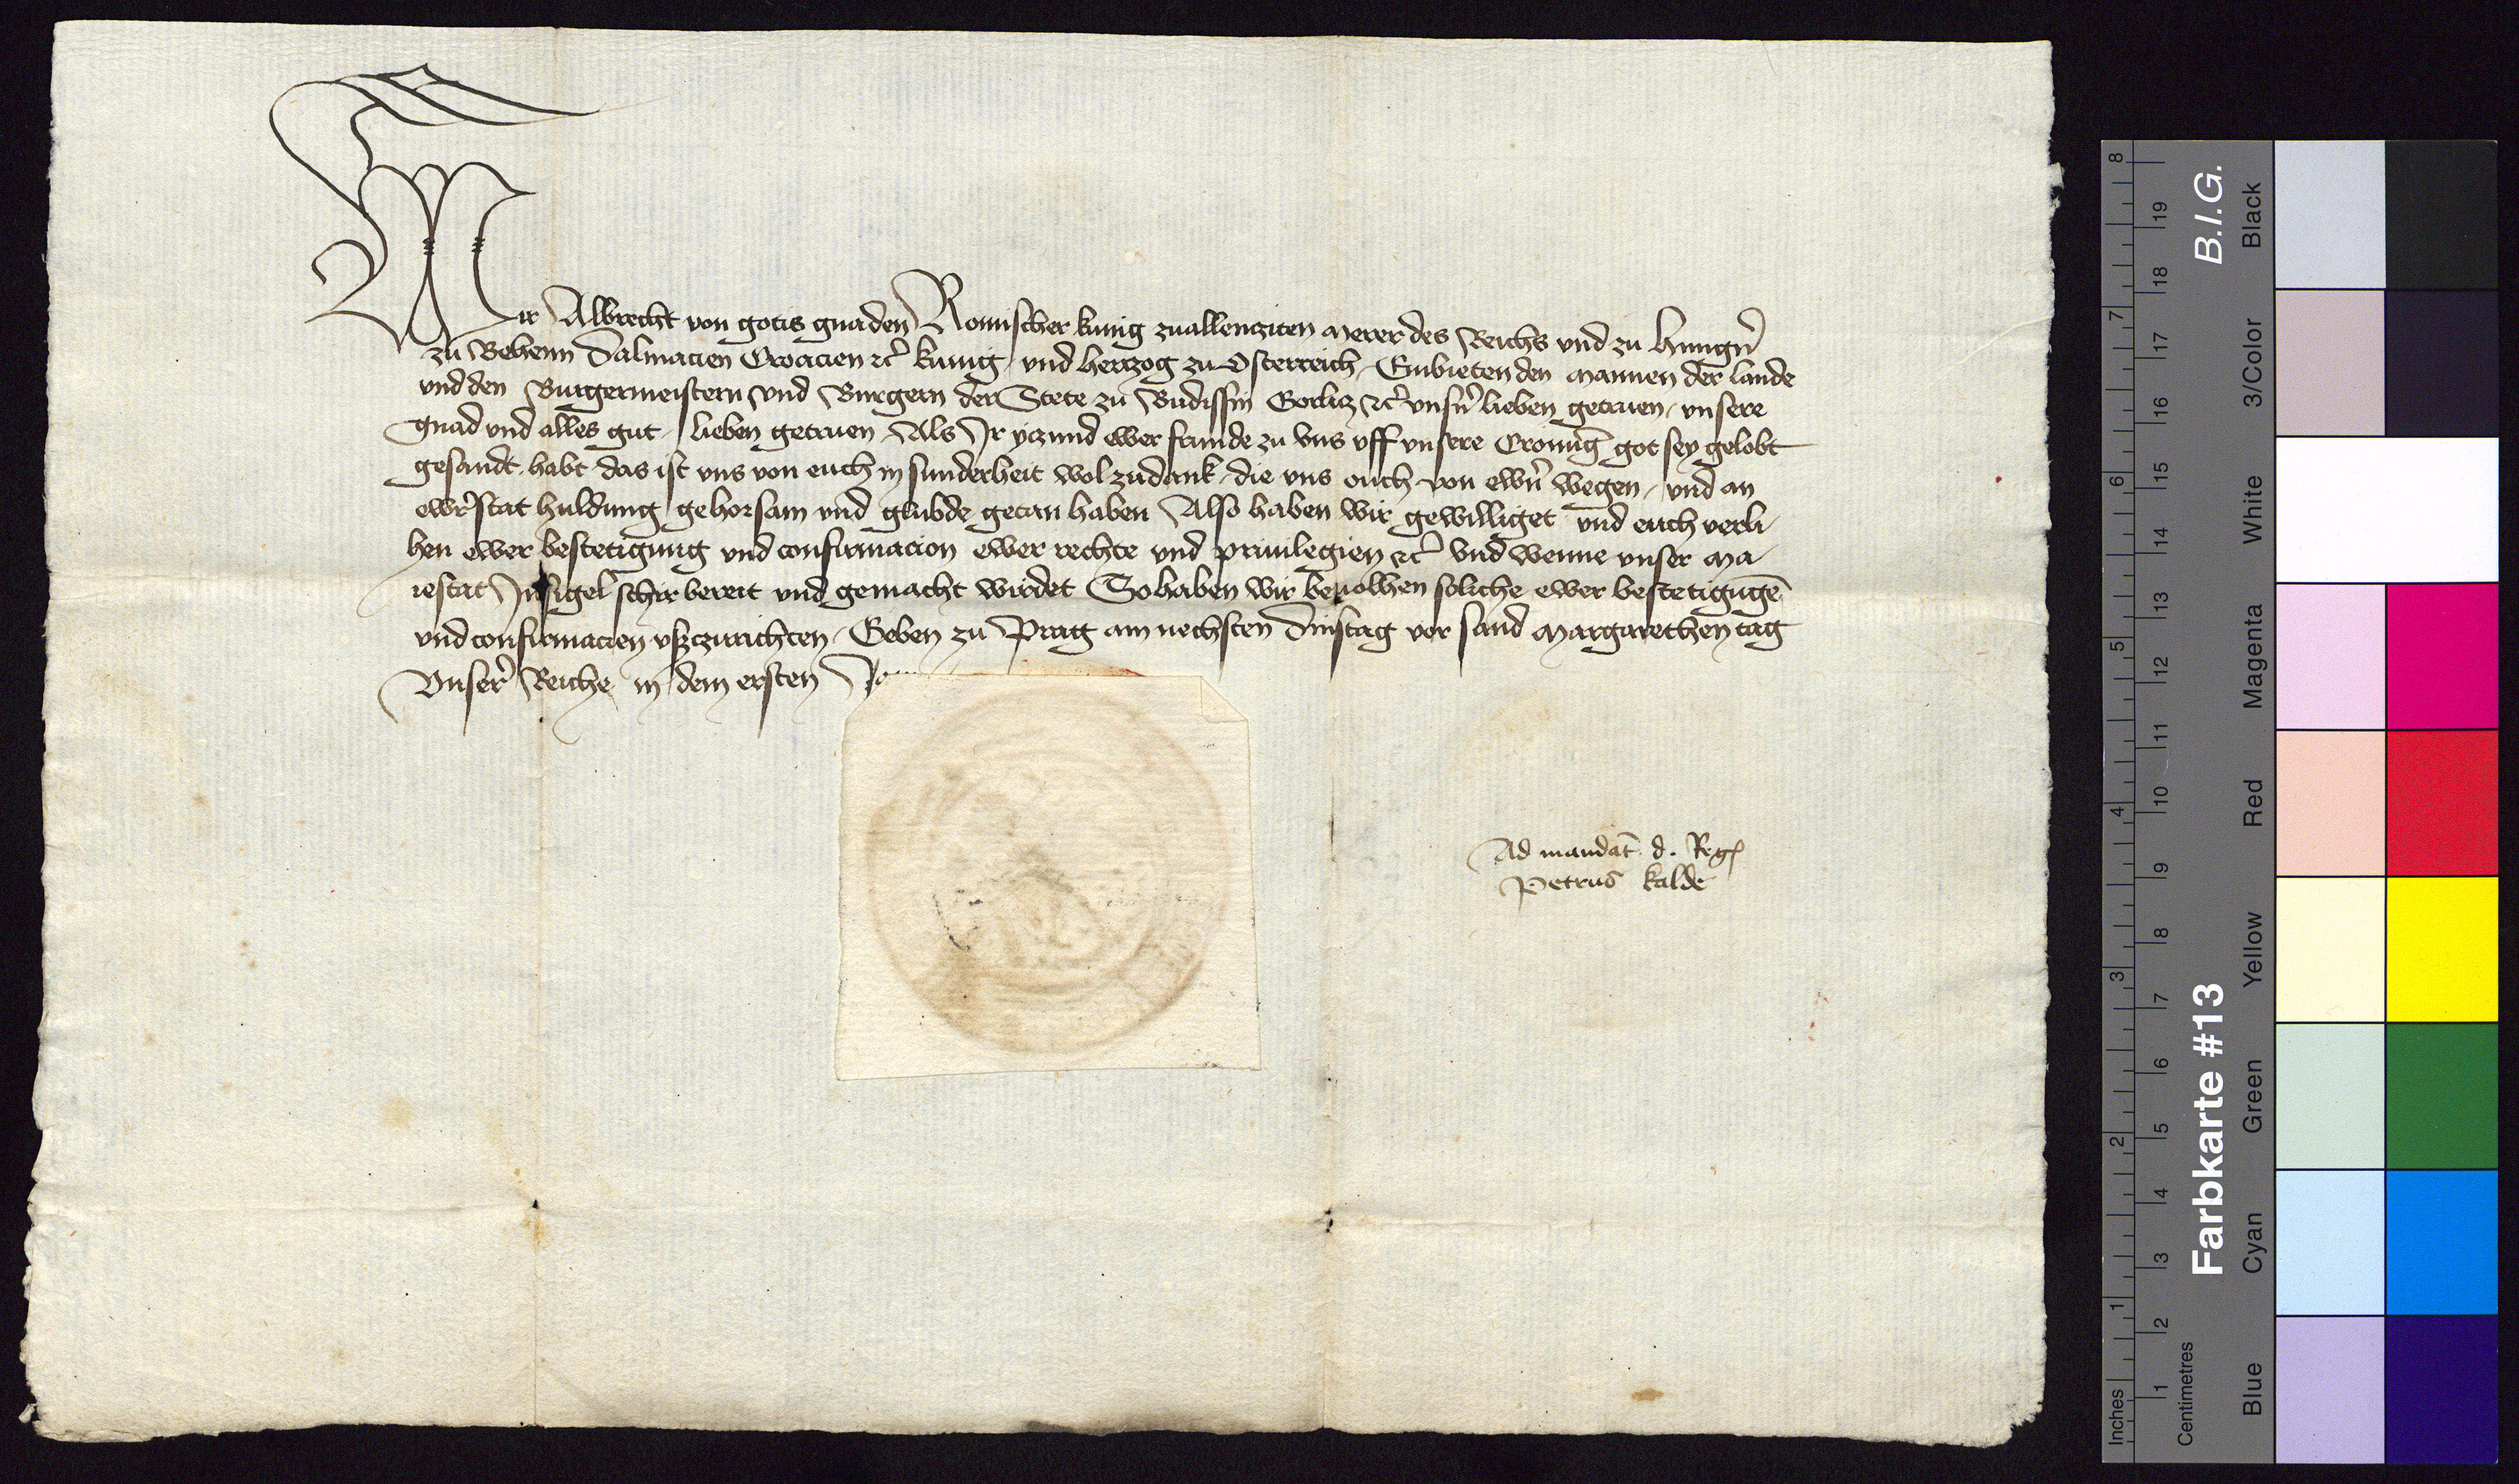 Wir Albrecht von gotis gnaden Romischer kunig zuallenziten merer des Reichs vnd zu Hungrn̄
zu Behemn Dalmacien Croacien ꝛc̄ kunig / vnd hertzog zu Osterreich / Embieten den mannen der lande
vnd den Burgermeistern vnd Burgern der Stete zu Budissin Gorlicz ꝛc̄ vnsrn̄ lieben getruen / vnsere
gnad vnd alles gut / lieben getruen / Als Ir yczund ewer frunde zu vns vff vnsere Cronunḡ got sey gelobt
gesandt habt das ist vns von euch in sunderheit wol zudank / die vns ouch von ewrn̄ wegen / vnd an
ewr̄ stat huldung gehorsam vnd glubde getan haben Also haben wir gewilliget vnd euch verli-
hen ewer bestetigung vnd confirmacion ewer rechte vnd priuilegien ꝛc̄ vnd wenne vnser ma-
iestat Insigel schir bereit vnd gemacht wirdet So haben wir beuolhen soliche ewer bestetigūgē
vnd confirmacien vßczurichten / Geben zu Prag am nechsten Dinstag vor sand Margarethen tag
Vnser̄ Reiche in dem ersten
Ad mandat̄ d. Reg
Petrus kalde
Inches
1
2
3
4
5
6
7
8
Centimetres
1
2
3
4
5
6
7
8
9
10
11
12
13
14
15
16
17
18
19
Farbkarte #13
B.I.G.
Blue
Cyan
Green
Yellow
Red
Magenta
White
3/Color
Black